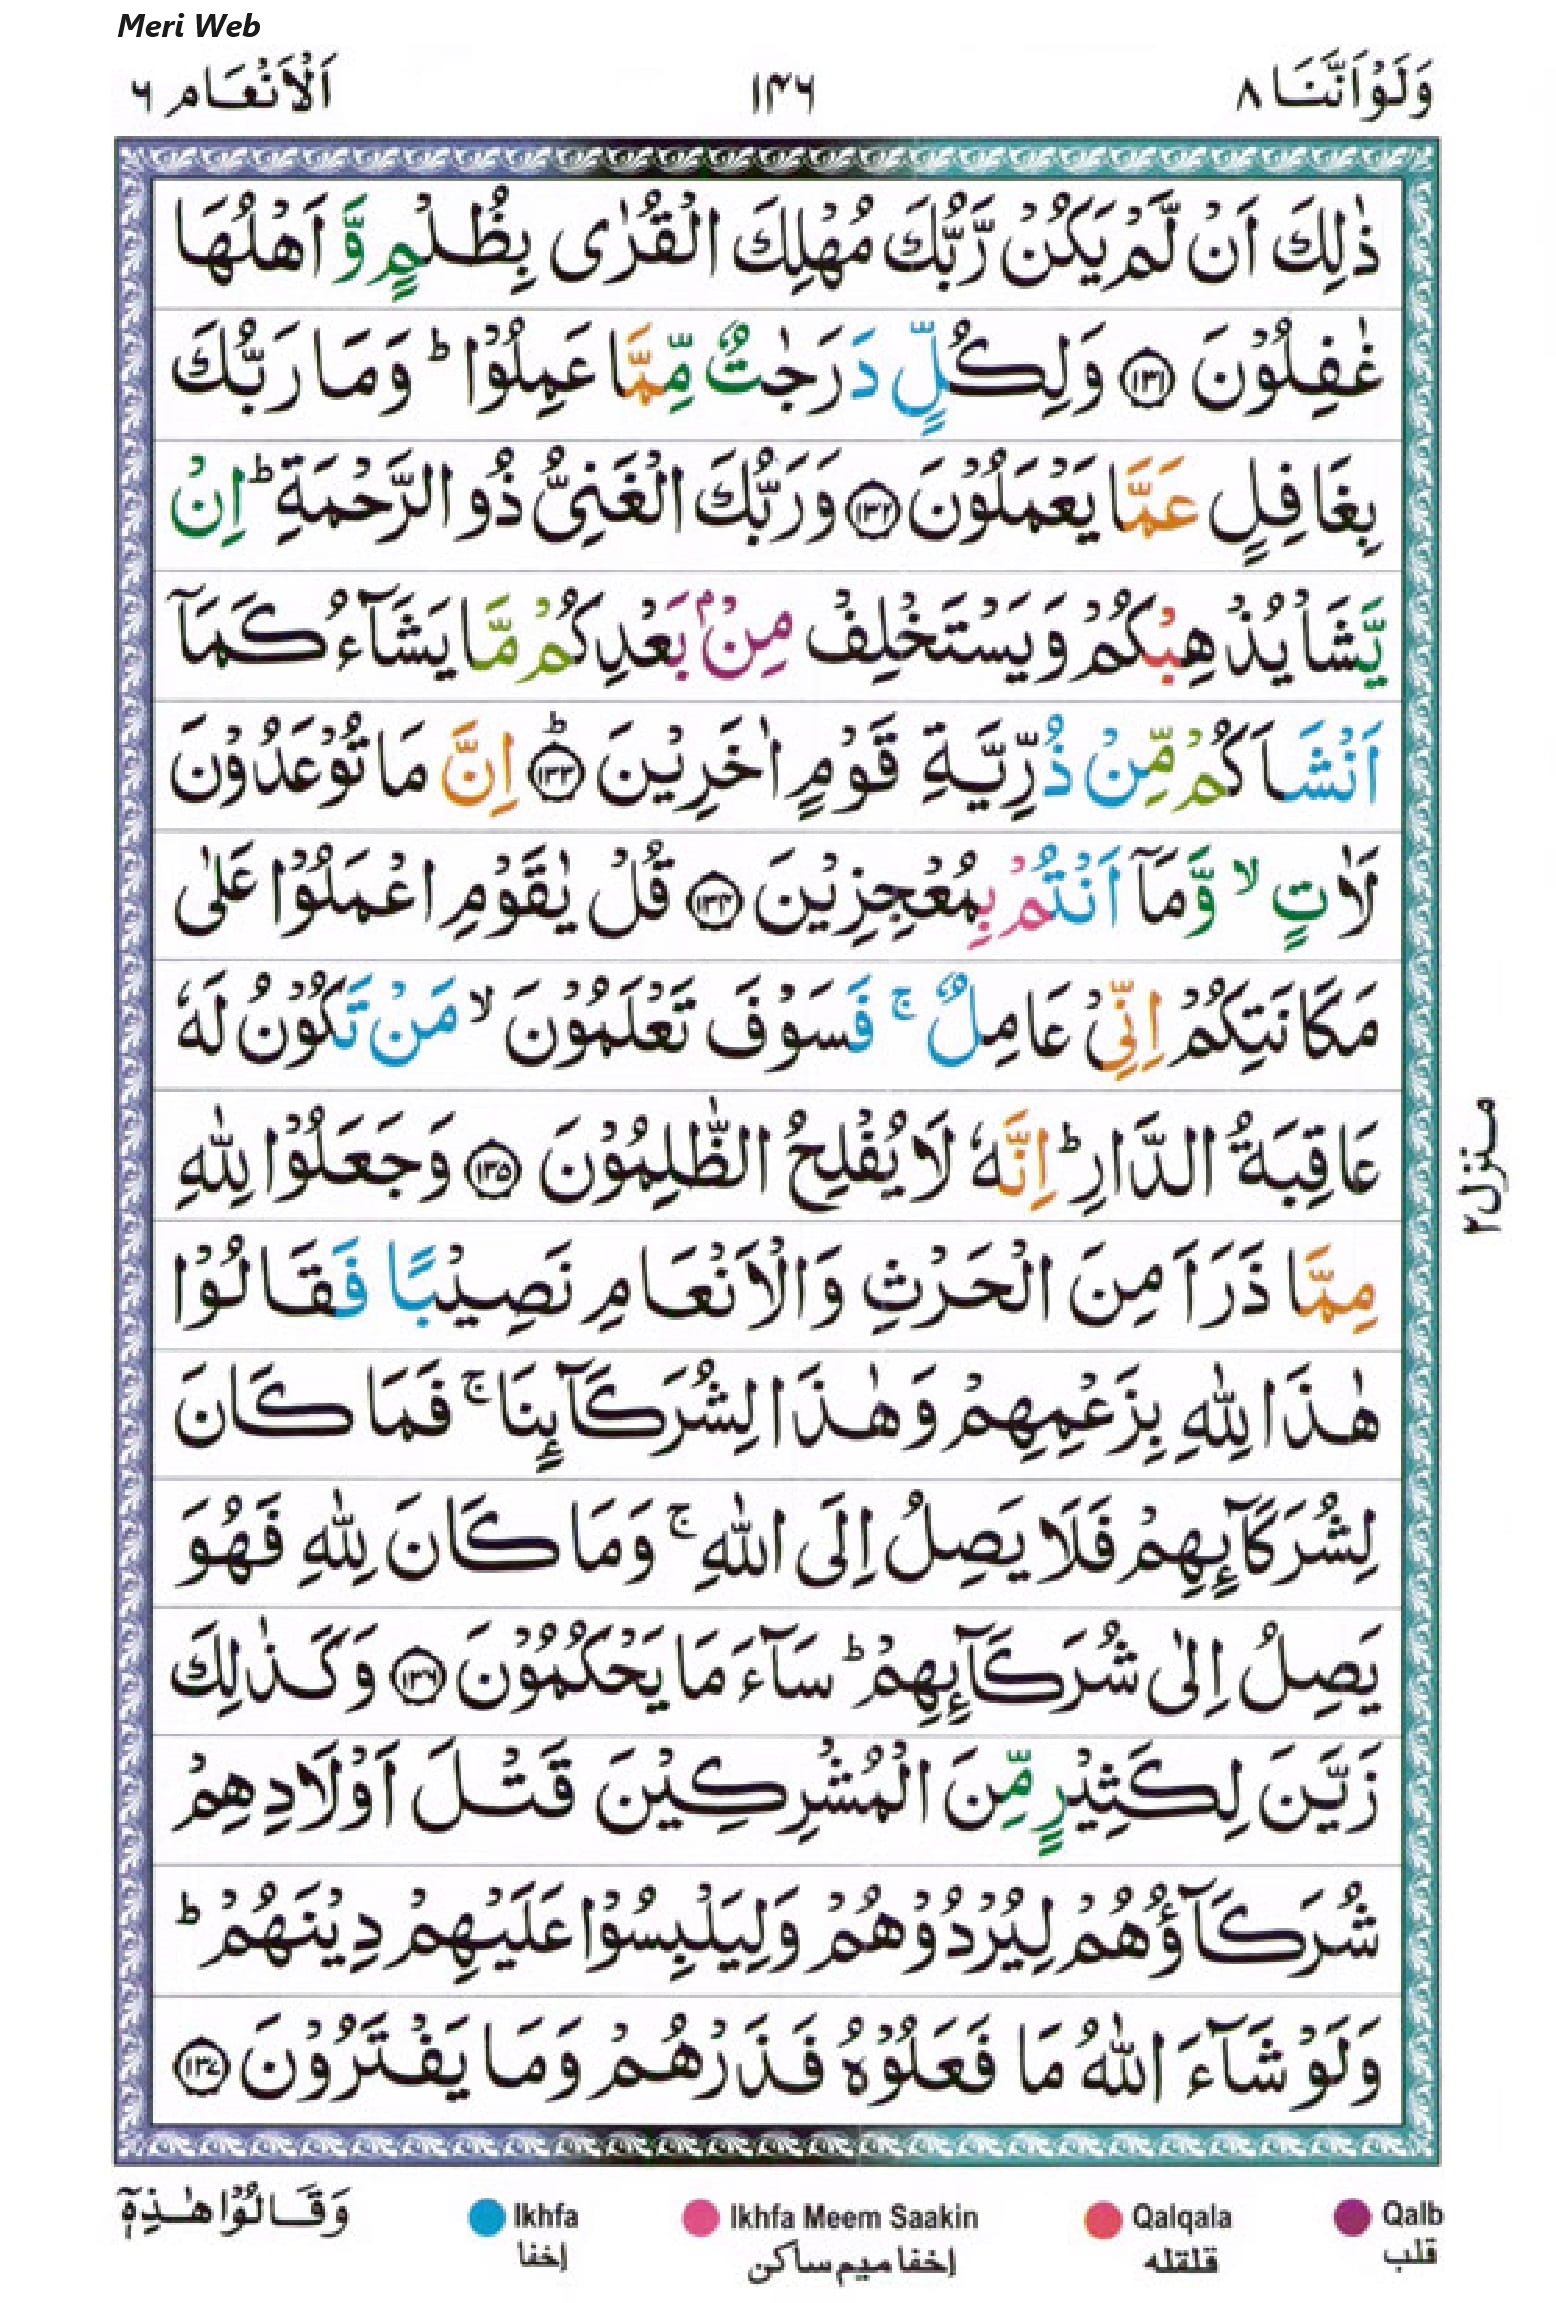 Meri Web
وَلَوْاَنَّنَا ٨
١٤٦
اَلْاَنْعَام ٦
ذٰلِكَ اَنْ لَّمْ يَكُنْ رَّبُّكَ مُهْلِكَ الْقُرٰى بِظُلْمٍ وَّ اَهْلُهَا
غٰفِلُوْنَ ﴿١٣١﴾ وَلِكُلٍّ دَرَجٰتٌ مِّمَّا عَمِلُوْا ؕ وَمَا رَبُّكَ
بِغَافِلٍ عَمَّا يَعْمَلُوْنَ ﴿١٣٢﴾ وَرَبُّكَ الْغَنِىُّ ذُو الرَّحْمَةِ ؕ اِنْ
يَّشَاْ يُذْهِبْكُمْ وَيَسْتَخْلِفْ مِنْۢ بَعْدِكُمْ مَّا يَشَآءُ كَمَآ
اَنْشَاَكُمْ مِّنْ ذُرِّيَّةِ قَوْمٍ اٰخَرِيْنَ ؕ﴿١٣٣﴾ اِنَّ مَا تُوْعَدُوْنَ
لَاٰتٍ ۙ وَّمَآ اَنْتُمْ بِمُعْجِزِيْنَ ﴿١٣٤﴾ قُلْ يٰقَوْمِ اعْمَلُوْا عَلٰى
مَكَانَتِكُمْ اِنِّىْ عَامِلٌ ۚ فَسَوْفَ تَعْلَمُوْنَ ۙ مَنْ تَكُوْنُ لَهٗ
عَاقِبَةُ الدَّارِ ؕ اِنَّهٗ لَا يُفْلِحُ الظّٰلِمُوْنَ ﴿١٣٥﴾ وَجَعَلُوْا لِلّٰهِ
مِمَّا ذَرَاَ مِنَ الْحَرْثِ وَالْاَنْعَامِ نَصِيْبًا فَقَالُوْا
هٰذَا لِلّٰهِ بِزَعْمِهِمْ وَهٰذَا لِشُرَكَآئِنَا ۚ فَمَا كَانَ
لِشُرَكَآئِهِمْ فَلَا يَصِلُ اِلَى اللّٰهِ ۚ وَمَا كَانَ لِلّٰهِ فَهُوَ
يَصِلُ اِلٰى شُرَكَآئِهِمْ ؕ سَآءَ مَا يَحْكُمُوْنَ ﴿١٣٦﴾ وَكَذٰلِكَ
زَيَّنَ لِكَثِيْرٍ مِّنَ الْمُشْرِكِيْنَ قَتْلَ اَوْلَادِهِمْ
شُرَكَآؤُهُمْ لِيُرْدُوْهُمْ وَلِيَلْبِسُوْا عَلَيْهِمْ دِيْنَهُمْ ؕ
وَلَوْ شَآءَ اللّٰهُ مَا فَعَلُوْهُ فَذَرْهُمْ وَمَا يَفْتَرُوْنَ ﴿١٣٧﴾
منزل ٢
وَقَالُوْا هٰذِهٖٓ
Ikhfa
إخفا
Ikhfa Meem Saakin
إخفا ميم ساكن
Qalqala
قلقله
Qalb
قلب